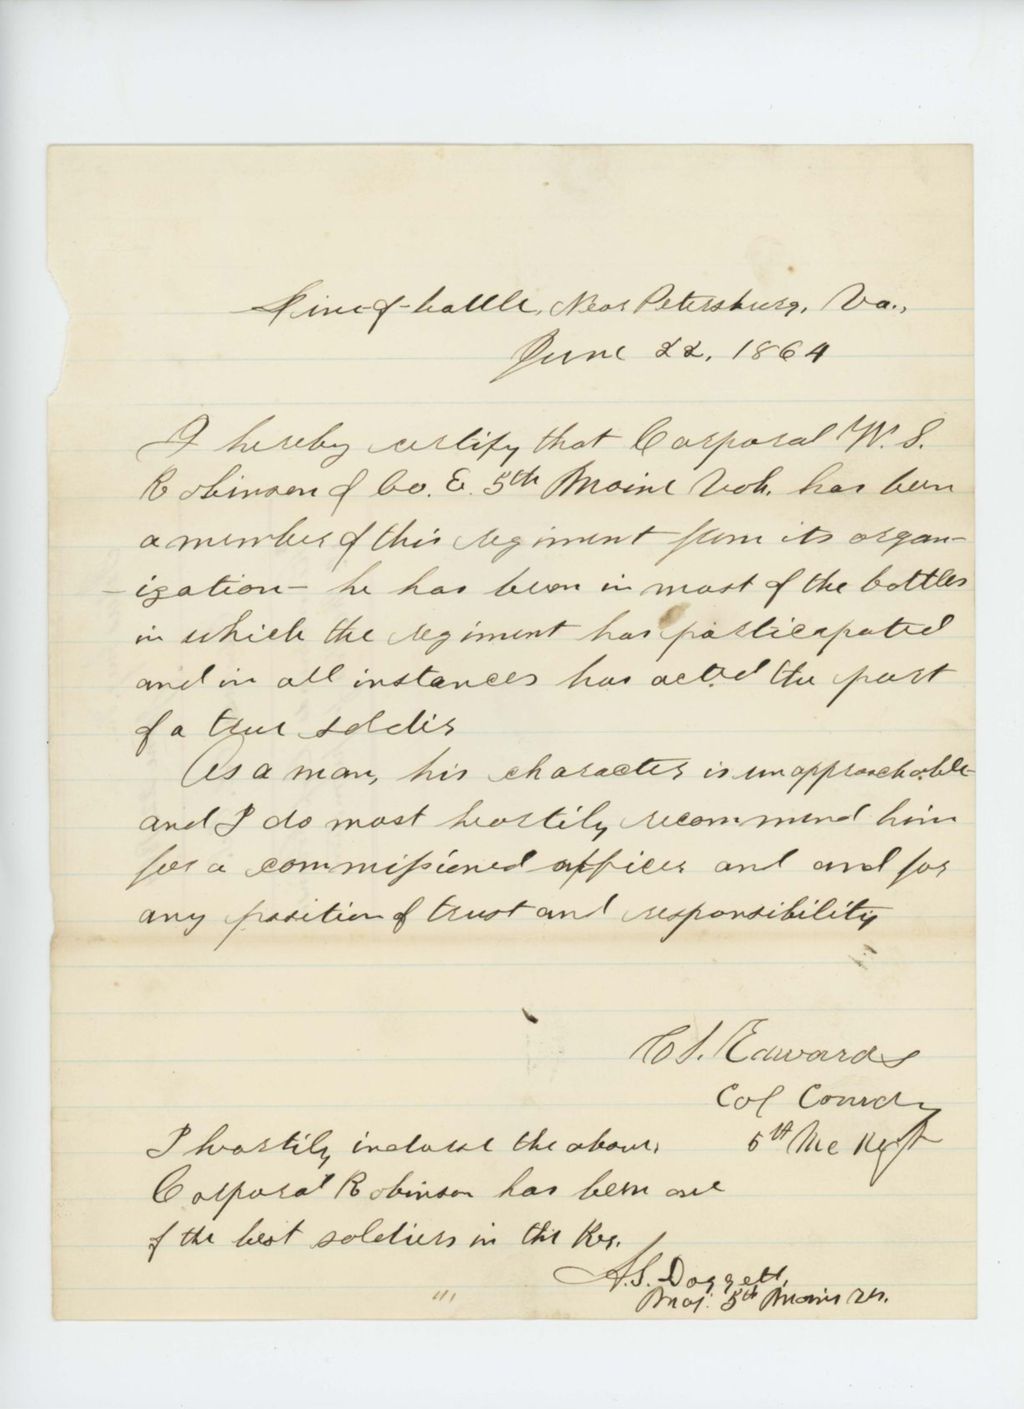 Line-of-battle, Near Petersburg, Va.,
June 22, 1864
I hereby certify that Corporal W. S.
Robinson of Co. E. 5th Maine Vols. has been
a member of this regiment from its organ-
-ization - he has been in most of the battles
in which the regiment has participated
and in all instances has acted the part
of a true soldier
As a man, his character is unapproachable
and I do most heartily recommend him
for a commissioned officer and and for
any position of trust and responsibility
C S. Edwards
Col Comdg
5th Me Regt
I heartily indorse the above,
Corporal Robinson has been one
of the best soldiers in the Reg.
A.S. Daggett,
Maj. 5th Maine Vols.